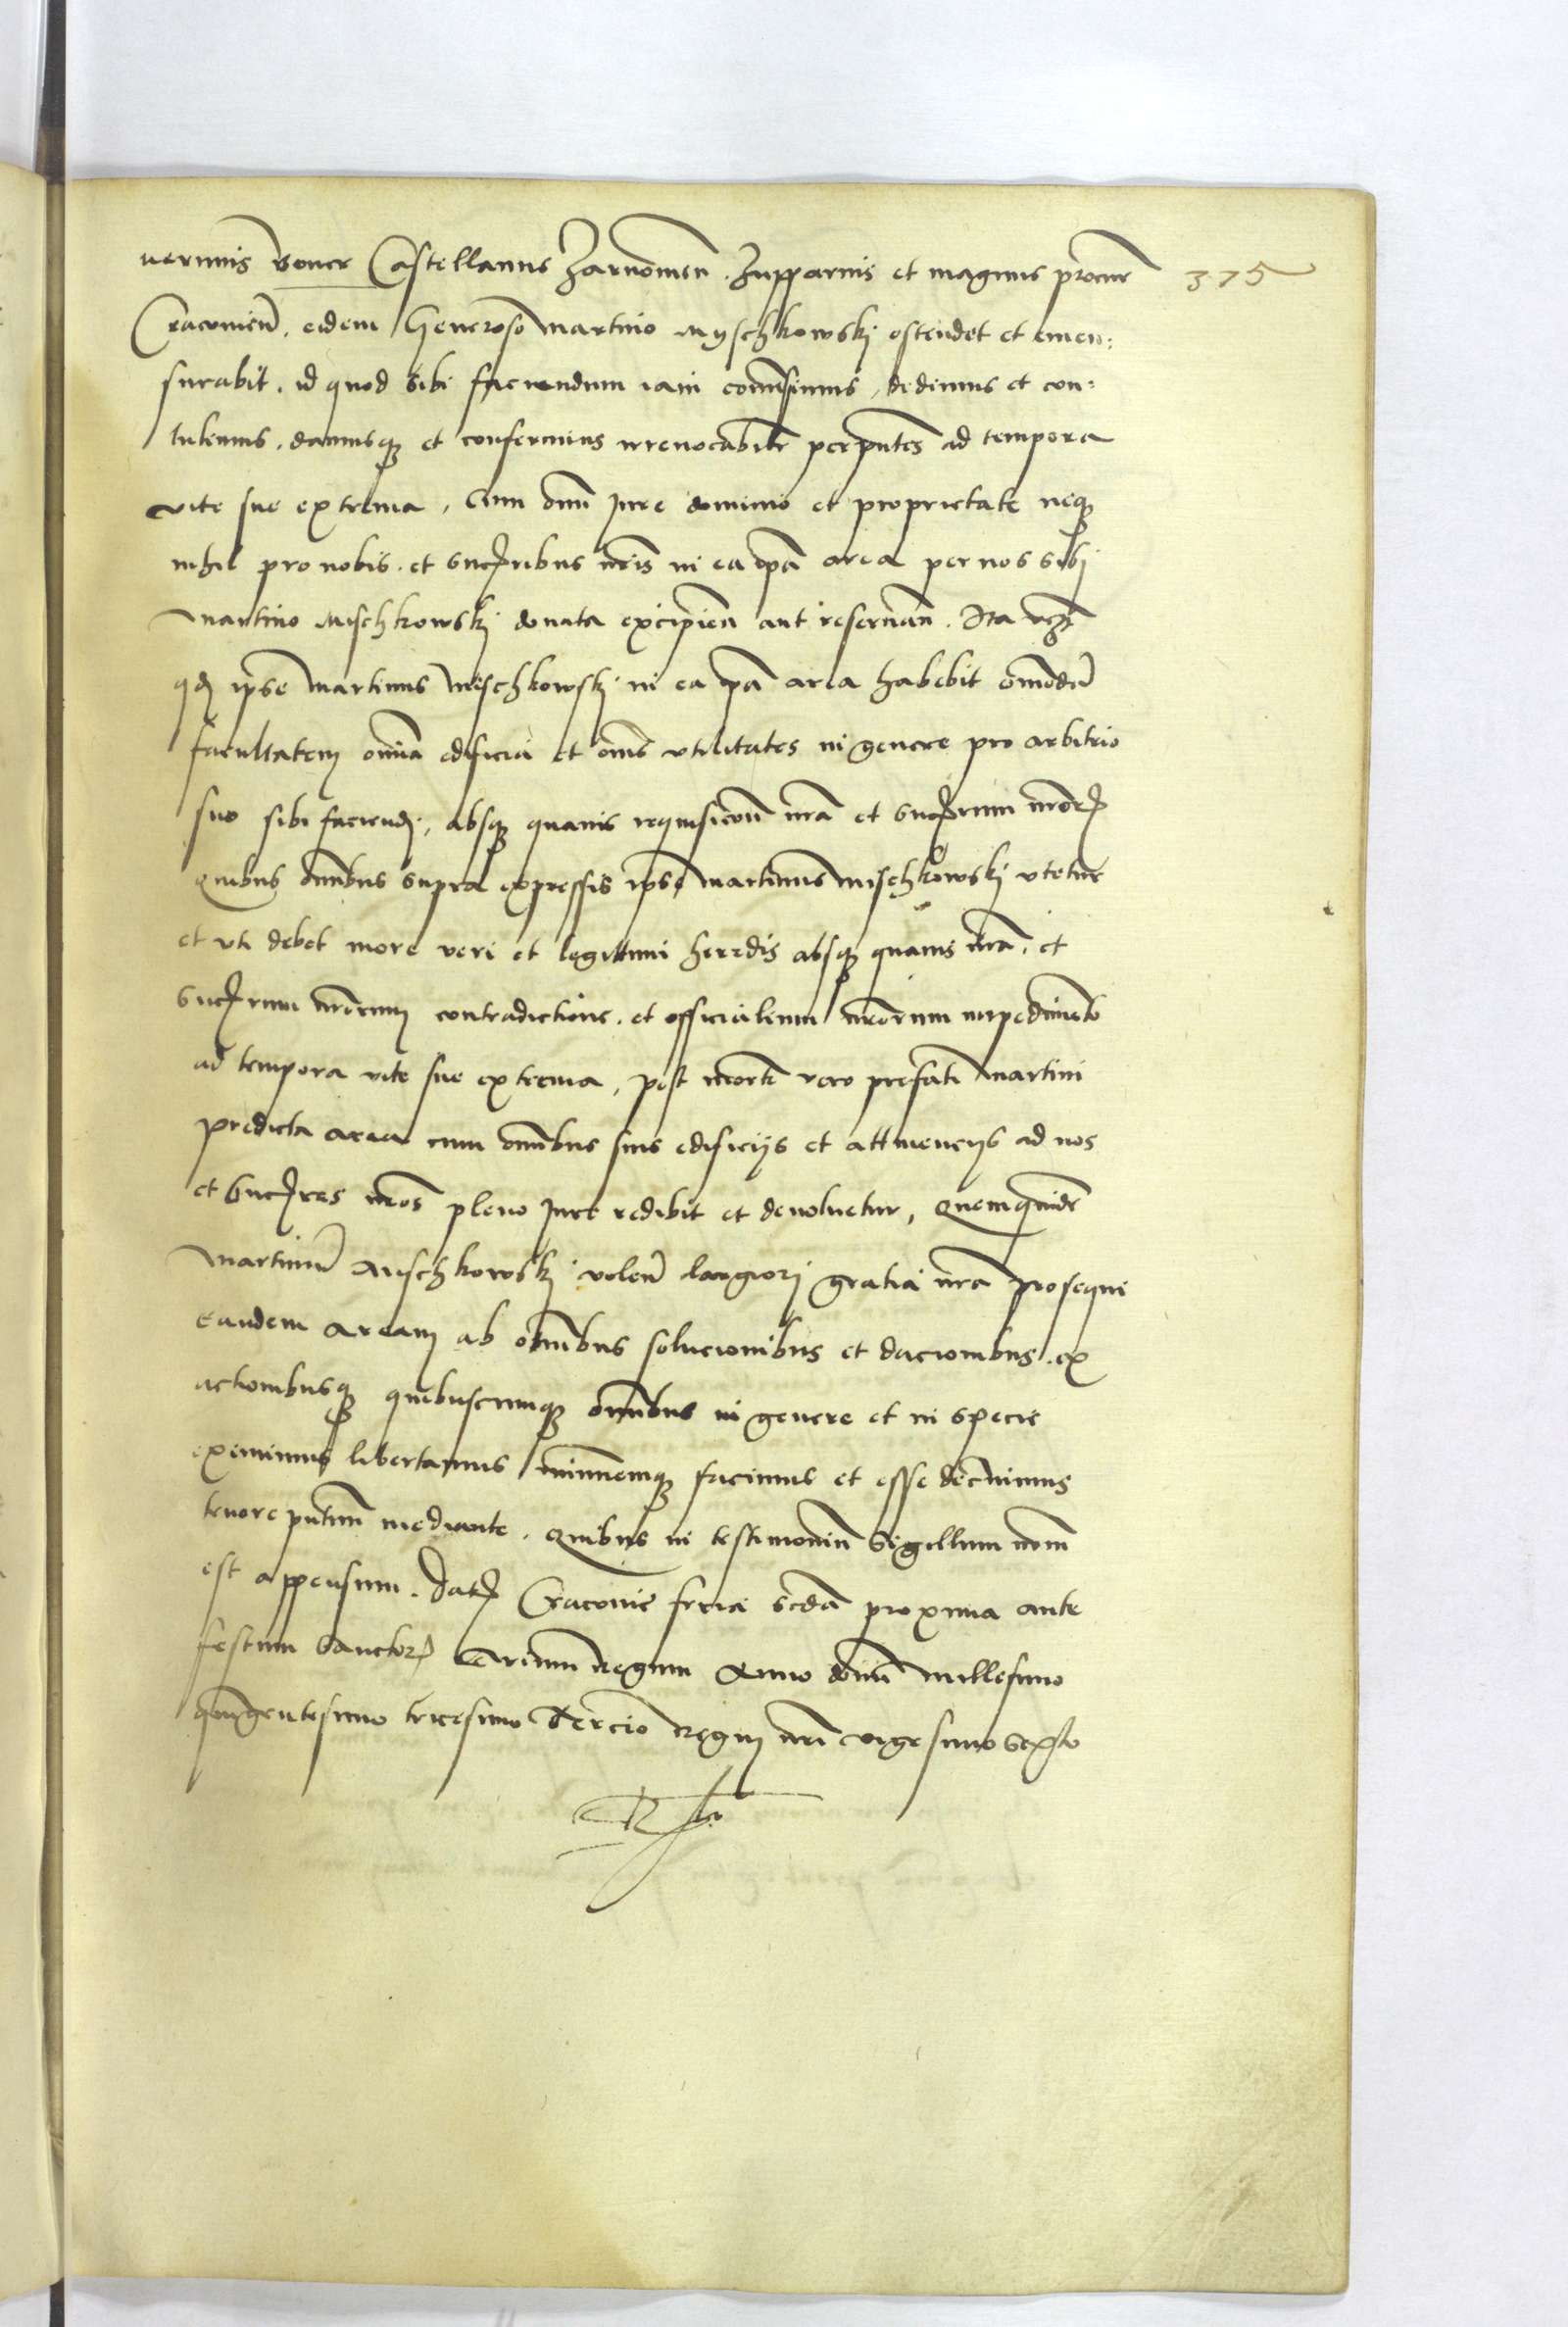 375
uerinus Boner Castellanus Zarnowien. Zupparius et magnus procur
Cracouien. eidem Generoso Martino Myschkowskj ostendet et emen:
surabit. id quod sibi faciendum iam comisimus, dedimus et con:
tulimus. damusq et conferimus irreuocabilr perpntes ad tempora
vite sue extrema, Cum omi Jure dominio et proprietate neq
nihil pro nobis. et succribus nris in ea ipa area per nos sibj
Martino Mischkowskj donata excipien aut reseruan. Ita
qd ipse Martinus Mischkowskj in ea ipa area habebit omodm
facultatem omia edificia et oms vtilitates in genere pro arbitrio
suo sibi faciendj, absq quauis requisicoe nra et succrum nror
quibus omibus supra expressis ipse Martinus Mischkowskj vtetur
et vti debet more veri et legittimi heredis absq quauis nra. et
succrum nrorum contradictione. et officialium nrorum impedimento
ad tempora vite sue extrema, post morte vero prefati Martini
predicta area cum omibus suis edificijs et attinencijs ad nos
et succres nros pleno Jure redibit et deuoluetur, Quemquide
Martinum Mischkowskj volen largiorj gratia nra prosequi
eandem aream ab omibus solucionibus et dacionibus. ex
actionibusq quibuscunq omibus in genere et in specie
eximimus libertamus immunemq facimus et esse decernimus
tenore pntium mediante. Quibus in testimonium Sigillum nrum
est appensum. Dat Cracouie feria scda proxima ante
festum Sanctor Trium Regum Anno domi Millesimo
quingentesimo tricesimo Tercio Regni nri vigesimo Sexto